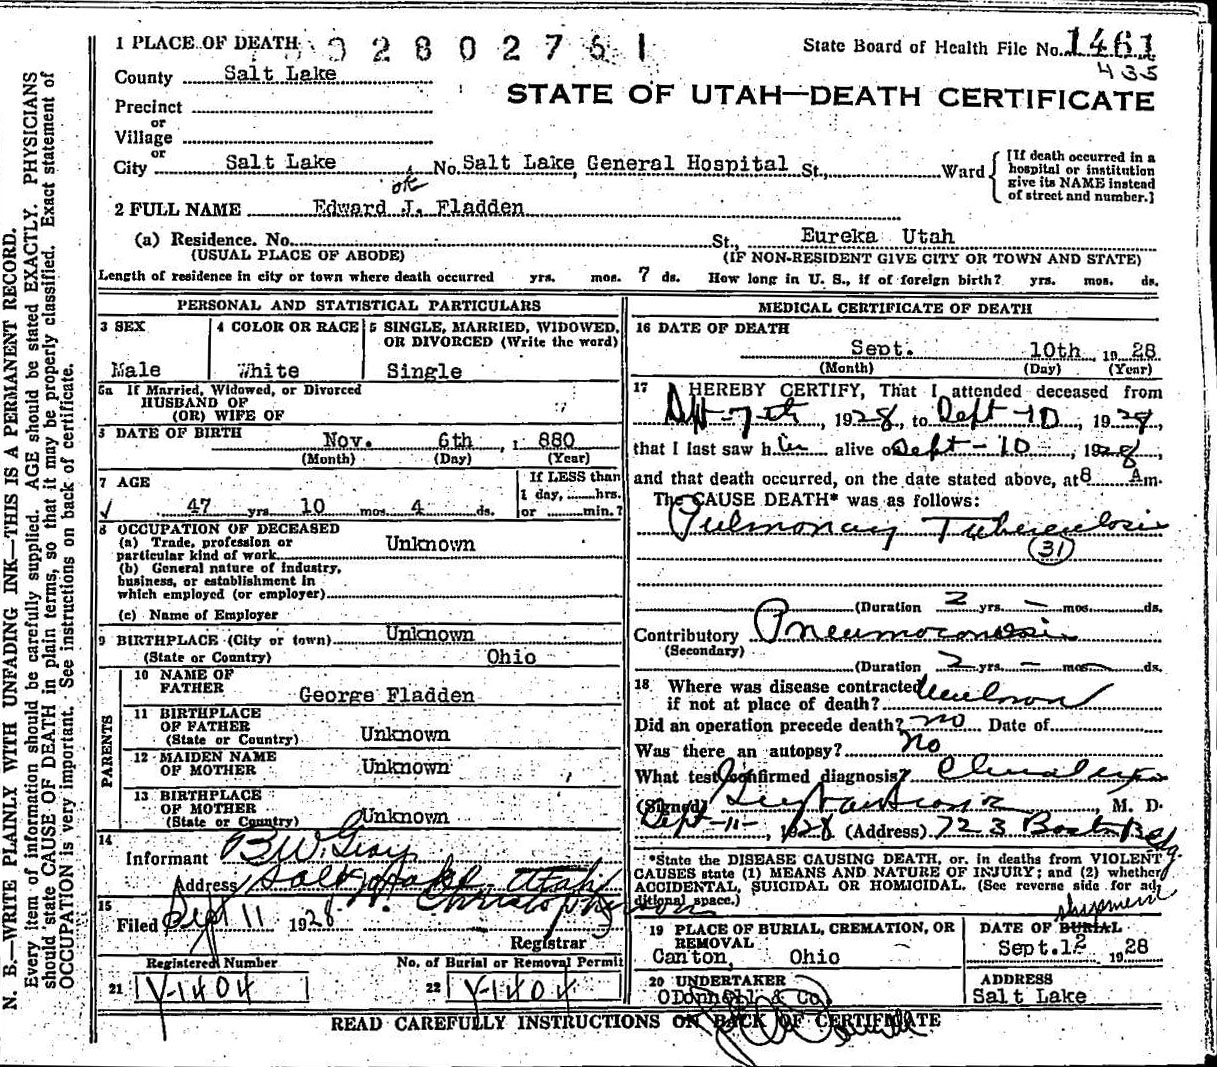 1 PLACE OF DEATH 92802751 State Board of Health File No. 1461
435
County Salt Lake
STATE OF UTAH—DEATH CERTIFICATE
Precinct
or
Village
or
City Salt Lake No. Salt Lake General Hospital St., Ward
[If death occurred in a
hospital or institution
give its NAME instead
of street and number.]
ok
2 FULL NAME Edward J. Fladden
(a) Residence. No. St., Eureka Utah
(USUAL PLACE OF ABODE) (IF NON-RESIDENT GIVE CITY OR TOWN AND STATE)
Length of residence in city or town where death occurred yrs. mos. 7 ds. How long in U. S., if of foreign birth? yrs. mos. ds.
PERSONAL AND STATISTICAL PARTICULARS
3 SEX 4 COLOR OR RACE 5 SINGLE, MARRIED, WIDOWED,
OR DIVORCED (Write the word)
Male White Single
5a If Married, Widowed, or Divorced
HUSBAND OF
(OR) WIFE OF
DATE OF BIRTH
Nov. 6th , 880
(Month) (Day) (Year)
7 AGE If LESS than
1 day, hrs.
√ 47 yrs. 10 mos. 4 ds. or min.?
8 OCCUPATION OF DECEASED
(a) Trade, profession or
particular kind of work Unknown
(b) General nature of industry,
business, or establishment in
which employed (or employer)
(c) Name of Employer
9 BIRTHPLACE (City or town) Unknown
(State or Country) Ohio
PARENTS
10 NAME OF
FATHER George Fladden
11 BIRTHPLACE
OF FATHER
(State or Country) Unknown
12 MAIDEN NAME
OF MOTHER Unknown
13 BIRTHPLACE
OF MOTHER
(State or Country) Unknown
14
Informant B.W. Gray
Address Salt Lake, Utah
15
Filed Sept 11 1928
Registrar
Registered Number No. of Burial or Removal Permit
21 Y-1404 22 Y-1404
MEDICAL CERTIFICATE OF DEATH
16 DATE OF DEATH
Sept. 10th 19 28
(Month) (Day) (Year)
17 I HEREBY CERTIFY, That I attended deceased from
Sept-7th, 1928, to Sept-10, 1928,
that I last saw him alive on Sept-10, 1928,
and that death occurred, on the date stated above, at 8 A m.
The CAUSE DEATH* was as follows:
Pulmonary Tuberculosis
(31)
(Duration 2 yrs. – mos. ds.
Contributory Pneumoconosis
(Secondary)
(Duration 2 yrs. – mos. ds.
18 Where was disease contracted
if not at place of death? Unknown
Did an operation precede death? no Date of
Was there an autopsy? no
What test confirmed diagnosis?
(Signed) , M. D.
Sept-11-, 1928 (Address) 723 Boston Bldg.
*State the DISEASE CAUSING DEATH, or, in deaths from VIOLENT
CAUSES state (1) MEANS AND NATURE OF INJURY; and (2) whether
ACCIDENTAL, SUICIDAL OR HOMICIDAL. (See reverse side for ad-
ditional space.)
shipment
19 PLACE OF BURIAL, CREMATION, OR
REMOVAL
Canton, Ohio
DATE OF BURIAL
Sept.12 1928
20 UNDERTAKER
ODonnell & Co
ADDRESS
Salt Lake
READ CAREFULLY INSTRUCTIONS ON BACK OF CERTIFICATE
N. B.—WRITE PLAINLY WITH UNFADING INK—THIS IS A PERMANENT RECORD.
Every item of information should be carefully supplied. AGE should be stated EXACTLY. PHYSICIANS
should state CAUSE OF DEATH in plain terms, so that it may be properly classified. Exact statement of
OCCUPATION is very important. See instructions on back of certificate.